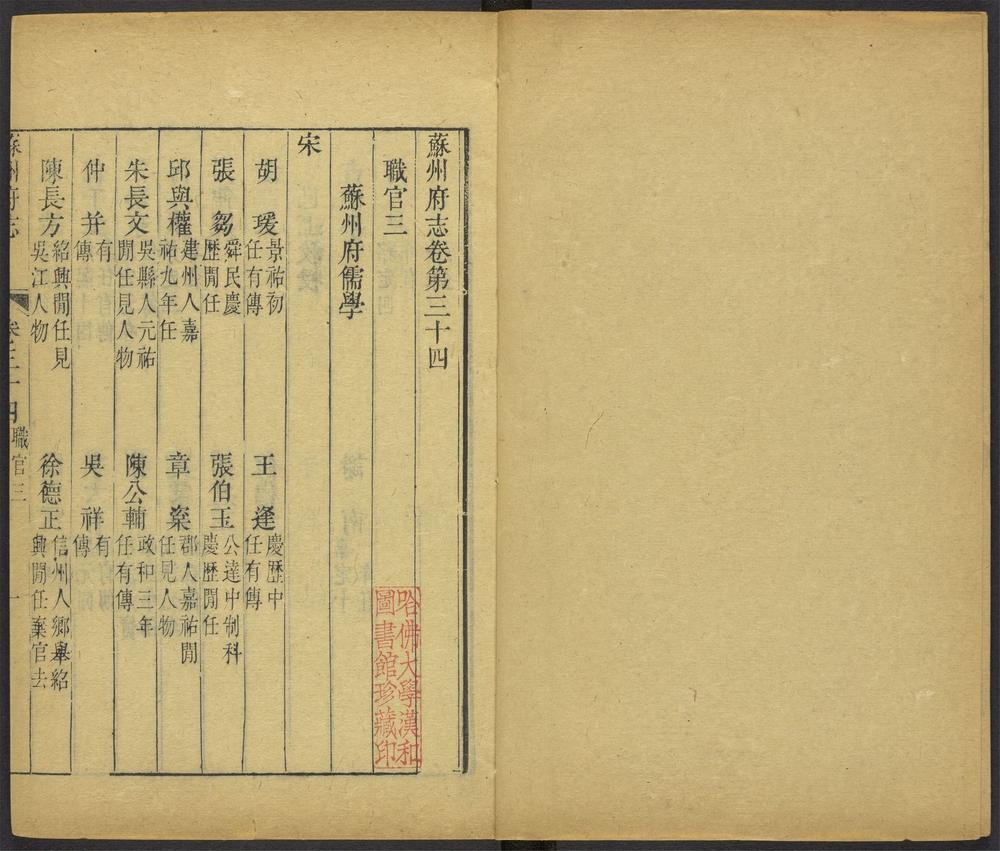 蘇州府志卷第三十四
職官三
蘇州府儒學
宋
胡瑗 景祐初任有傳 王逢 慶歷中任有傳
張芻 舜民慶歷閒任 張伯玉 公達中制科慶歷閒任
邱與權 建州人嘉祐九年任 章楶 郡人嘉祐閒任見人物
朱長文 吳縣人元祐閒任見人物 陳公輔 政和三年任有傳
仲并 有傳 吳大祥 有傳
陳長方 紹興閒任見吳江人物 徐德正 信州人鄉舉紹興閒任棄官去
蘇州府志 卷三十四 職官三 一
哈佛大學漢和
圖書館珍藏印